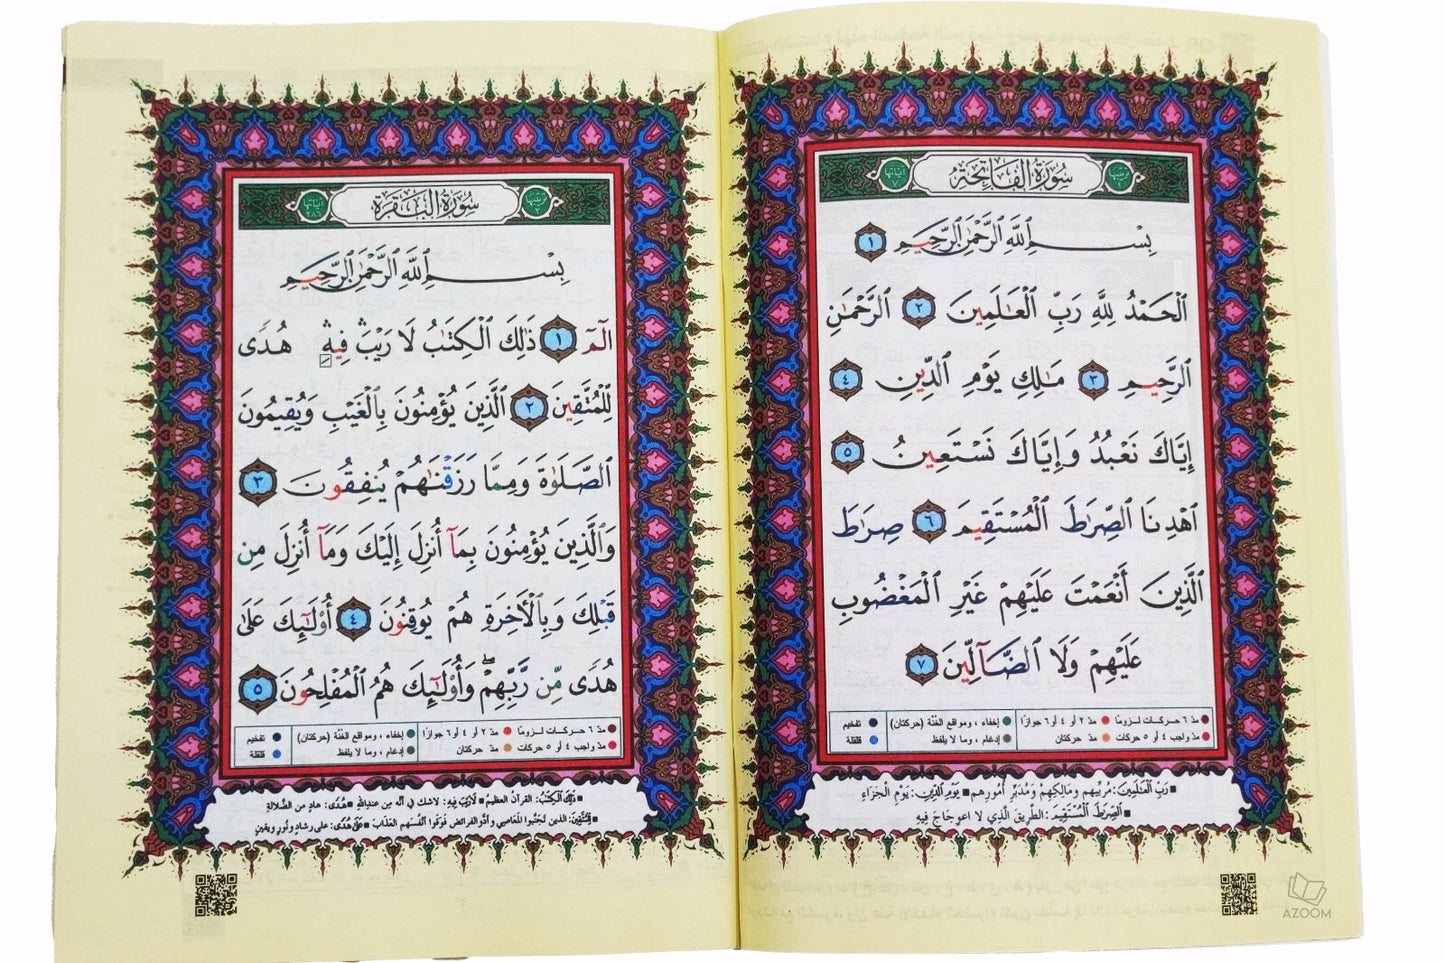 ترتيبها ١ سُورَةُ الفَاتِحَةِ آيَاتها ٧
بِسْمِ ٱللَّهِ ٱلرَّحْمَٰنِ ٱلرَّحِيمِ ١
ٱلْحَمْدُ لِلَّهِ رَبِّ ٱلْعَٰلَمِينَ ٢ ٱلرَّحْمَٰنِ
ٱلرَّحِيمِ ٣ مَٰلِكِ يَوْمِ ٱلدِّينِ ٤
إِيَّاكَ نَعْبُدُ وَإِيَّاكَ نَسْتَعِينُ ٥
ٱهْدِنَا ٱلصِّرَٰطَ ٱلْمُسْتَقِيمَ ٦ صِرَٰطَ
ٱلَّذِينَ أَنْعَمْتَ عَلَيْهِمْ غَيْرِ ٱلْمَغْضُوبِ
عَلَيْهِمْ وَلَا ٱلضَّآلِّينَ ٧
مدّ ٦ حركات لزومًا مدّ ٢ أو ٤ أو ٦ جوازًا إخفاء ، ومواقع الغنّة (حركتان) تفخيم
مدّ واجب ٤ أو ٥ حركات مدّ حركتان إدغام ، وما لا يلفظ قلقلة
رَبِّ ٱلْعَٰلَمِينَ: مُرَبِّيهِم وَمَالِكِهِمْ وَمُدَبِّرِ أُمُورِهِم يَوْمِ ٱلدِّينِ: يَوْمِ الْجَزَاءِ
ٱلصِّرَٰطَ ٱلْمُسْتَقِيمَ: الطَّرِيقَ الَّذِي لَا اعْوِجَاجَ فِيهِ
AZOOM
ترتيبها ٢ سُورَةُ البَقَرَةِ آيَاتها ٢٨٦
بِسْمِ ٱللَّهِ ٱلرَّحْمَٰنِ ٱلرَّحِيمِ
الٓمٓ ١ ذَٰلِكَ ٱلْكِتَٰبُ لَا رَيْبَ ۛ فِيهِ ۛ هُدًى
لِّلْمُتَّقِينَ ٢ ٱلَّذِينَ يُؤْمِنُونَ بِٱلْغَيْبِ وَيُقِيمُونَ
ٱلصَّلَوٰةَ وَمِمَّا رَزَقْنَٰهُمْ يُنفِقُونَ ٣
وَٱلَّذِينَ يُؤْمِنُونَ بِمَآ أُنزِلَ إِلَيْكَ وَمَآ أُنزِلَ مِن
قَبْلِكَ وَبِٱلْأَخِرَةِ هُمْ يُوقِنُونَ ٤ أُو۟لَٰٓئِكَ عَلَىٰ
هُدًى مِّن رَّبِّهِمْ ۖ وَأُو۟لَٰٓئِكَ هُمُ ٱلْمُفْلِحُونَ ٥
مدّ ٦ حركات لزومًا مدّ ٢ أو ٤ أو ٦ جوازًا إخفاء ، ومواقع الغنّة (حركتان) تفخيم
مدّ واجب ٤ أو ٥ حركات مدّ حركتان إدغام ، وما لا يلفظ قلقلة
ذَٰلِكَ ٱلْكِتَٰبُ: القرآن العظيم لَا رَيْبَ فِيهِ: لا شك في أنه من عند الله هُدًى: هادٍ من الضلالة
لِّلْمُتَّقِينَ: الذين تجنبوا المعاصي وأدّوا الفرائض فوقوا أنفسهم العذاب عَلَىٰ هُدًى: على رشادٍ ونُورٍ ويقينٍ